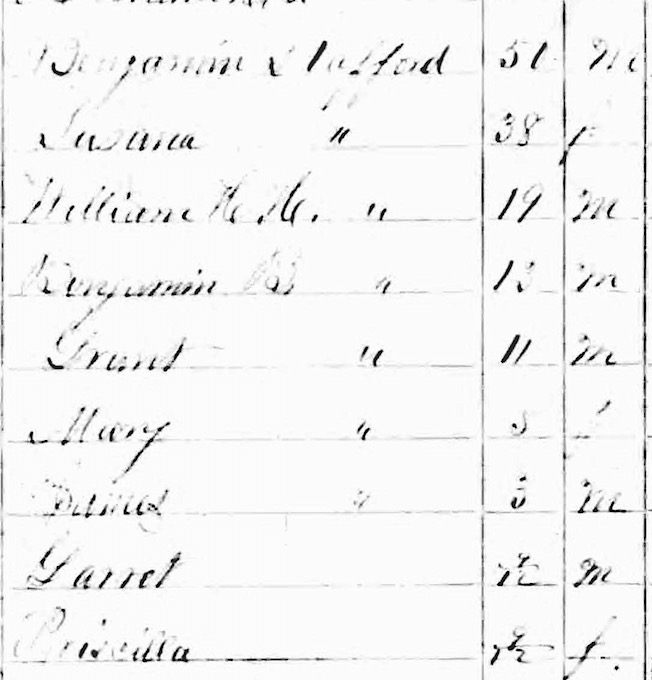 Benjamin Stafford 51 M
Susana " 38 f
William H. H. " 19 M
Benjamin B " 13 M
Grant " 11 M
Mary " 5 f
" 3 M
Garret M
Priscilla f.